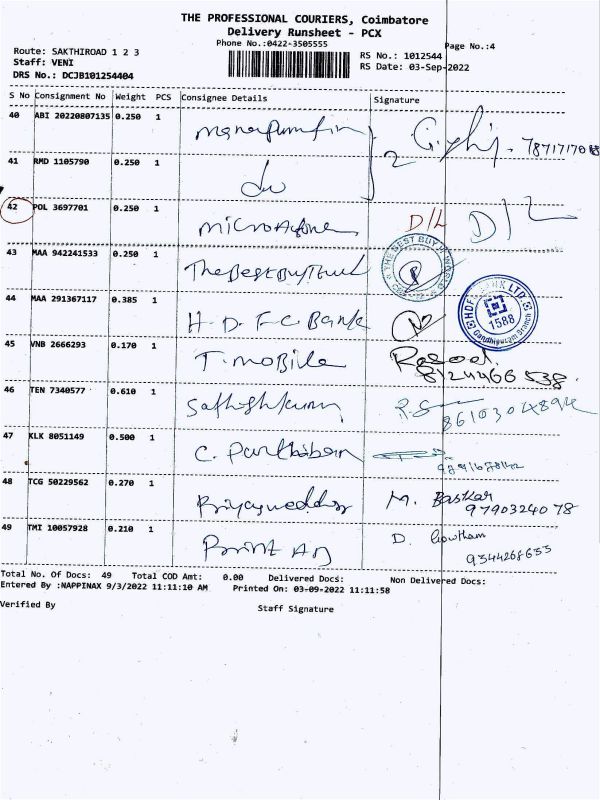 THE PROFESSIONAL COURIERS, Coimbatore
Delivery Runsheet - PCX
Phone No.:0422-3505555
Page No.:4
Route: SAKTHIROAD 1 2 3
Staff: VENI
DRS No.: DCJB101254404
RS No.: 1012544
RS Date: 03-Sep-2022
S No Consignment No Weight PCS Consignee Details Signature
40 ABI 20220807135 0.250 1
41 RMD 1105790 0.250 1 2
42 POL 3697701 0.250 1 D/L D/L
43 MAA 942241533 0.250 1 THE BEST BUY
44 MAA 291367117 0.385 1 H.D.F.C. Bank
1588
Gandhipuram Branch
45 VNB 2666293 0.170 1 T.mobile Rasool.
8124466538.
46 TEN 7340577 0.610 1 8610304894
47 KLK 8051149 0.500 1 C. Parthiban
48 TCG 50229562 0.270 1 M. Baskar
9790324078
49 TMI 10057928 0.210 1 Print AD D. Gowtham
9344268653
Total No. Of Docs: 49 Total COD Amt: 0.00 Delivered Docs: Non Delivered Docs:
Entered By :NAPPINAX 9/3/2022 11:11:10 AM Printed On: 03-09-2022 11:11:58
Verified By Staff Signature